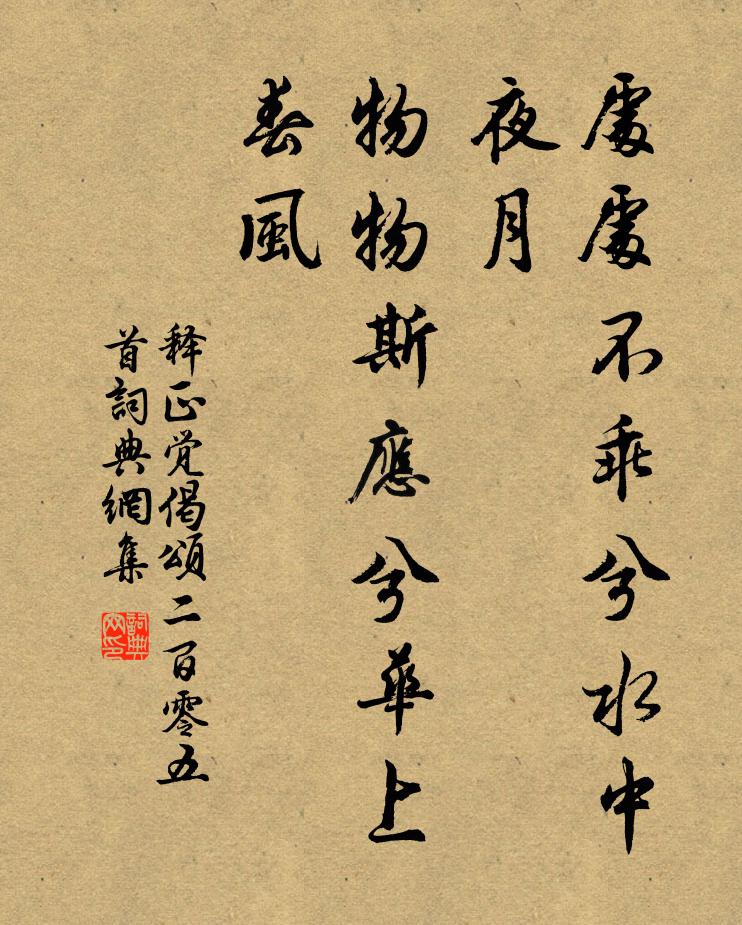 處處不乖兮水中
夜月
物物斯應兮華上
春風
释正觉偈頌二百零五
首詞典網集
詞典
网印